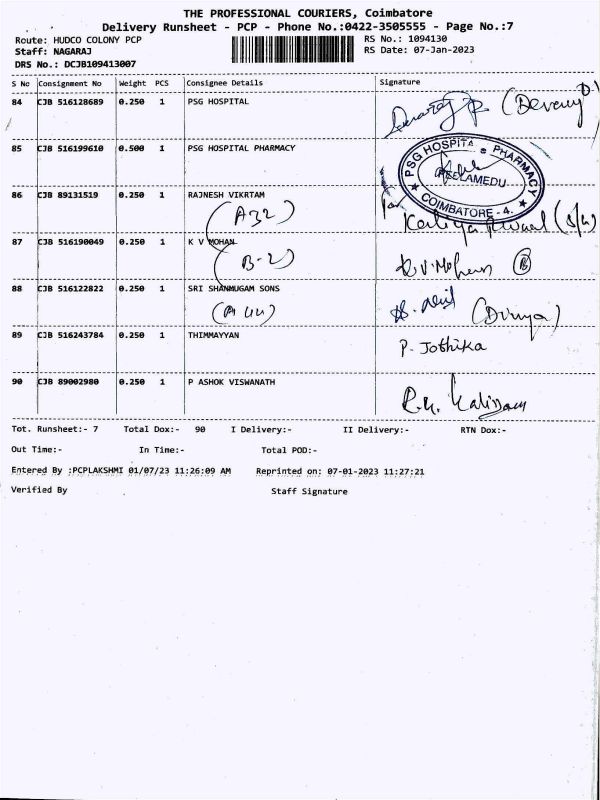 THE PROFESSIONAL COURIERS, Coimbatore
Delivery Runsheet - PCP - Phone No.:0422-3505555 - Page No.:7
Route: HUDCO COLONY PCP RS No.: 1094130
Staff: NAGARAJ RS Date: 07-Jan-2023
DRS No.: DCJB109413007
S No Consignment No Weight PCS Consignee Details Signature
84 CJB 516128689 0.250 1 PSG HOSPITAL
85 CJB 516199610 0.500 1 PSG HOSPITAL PHARMACY
PSG HOSPITAL PHARMACY
PEELAMEDU
COIMBATORE - 4.
86 CJB 89131519 0.250 1 RAJNESH VIKRTAM
(A32) for
87 CJB 516190049 0.250 1 K V MOHAN
(B-2) K.V. Mohan B
88 CJB 516122822 0.250 1 SRI SHANMUGAM SONS
(A 44) (Divya)
89 CJB 516243784 0.250 1 THIMMAYYAN
P. Jothika
90 CJB 89002980 0.250 1 P ASHOK VISWANATH
Tot. Runsheet:- 7 Total Dox:- 90 I Delivery:- II Delivery:- RTN Dox:-
Out Time:- In Time:- Total POD:-
Entered By :PCPLAKSHMI 01/07/23 11:26:09 AM Reprinted on: 07-01-2023 11:27:21
Verified By Staff Signature